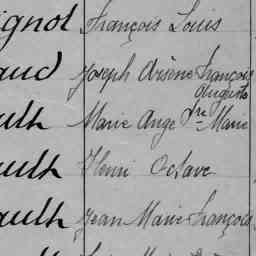 ignol François Louis
aud Joseph Arsène François
Auguste
ault Marie Ange Marie
ault Henri Octave
ault Jean Marie François